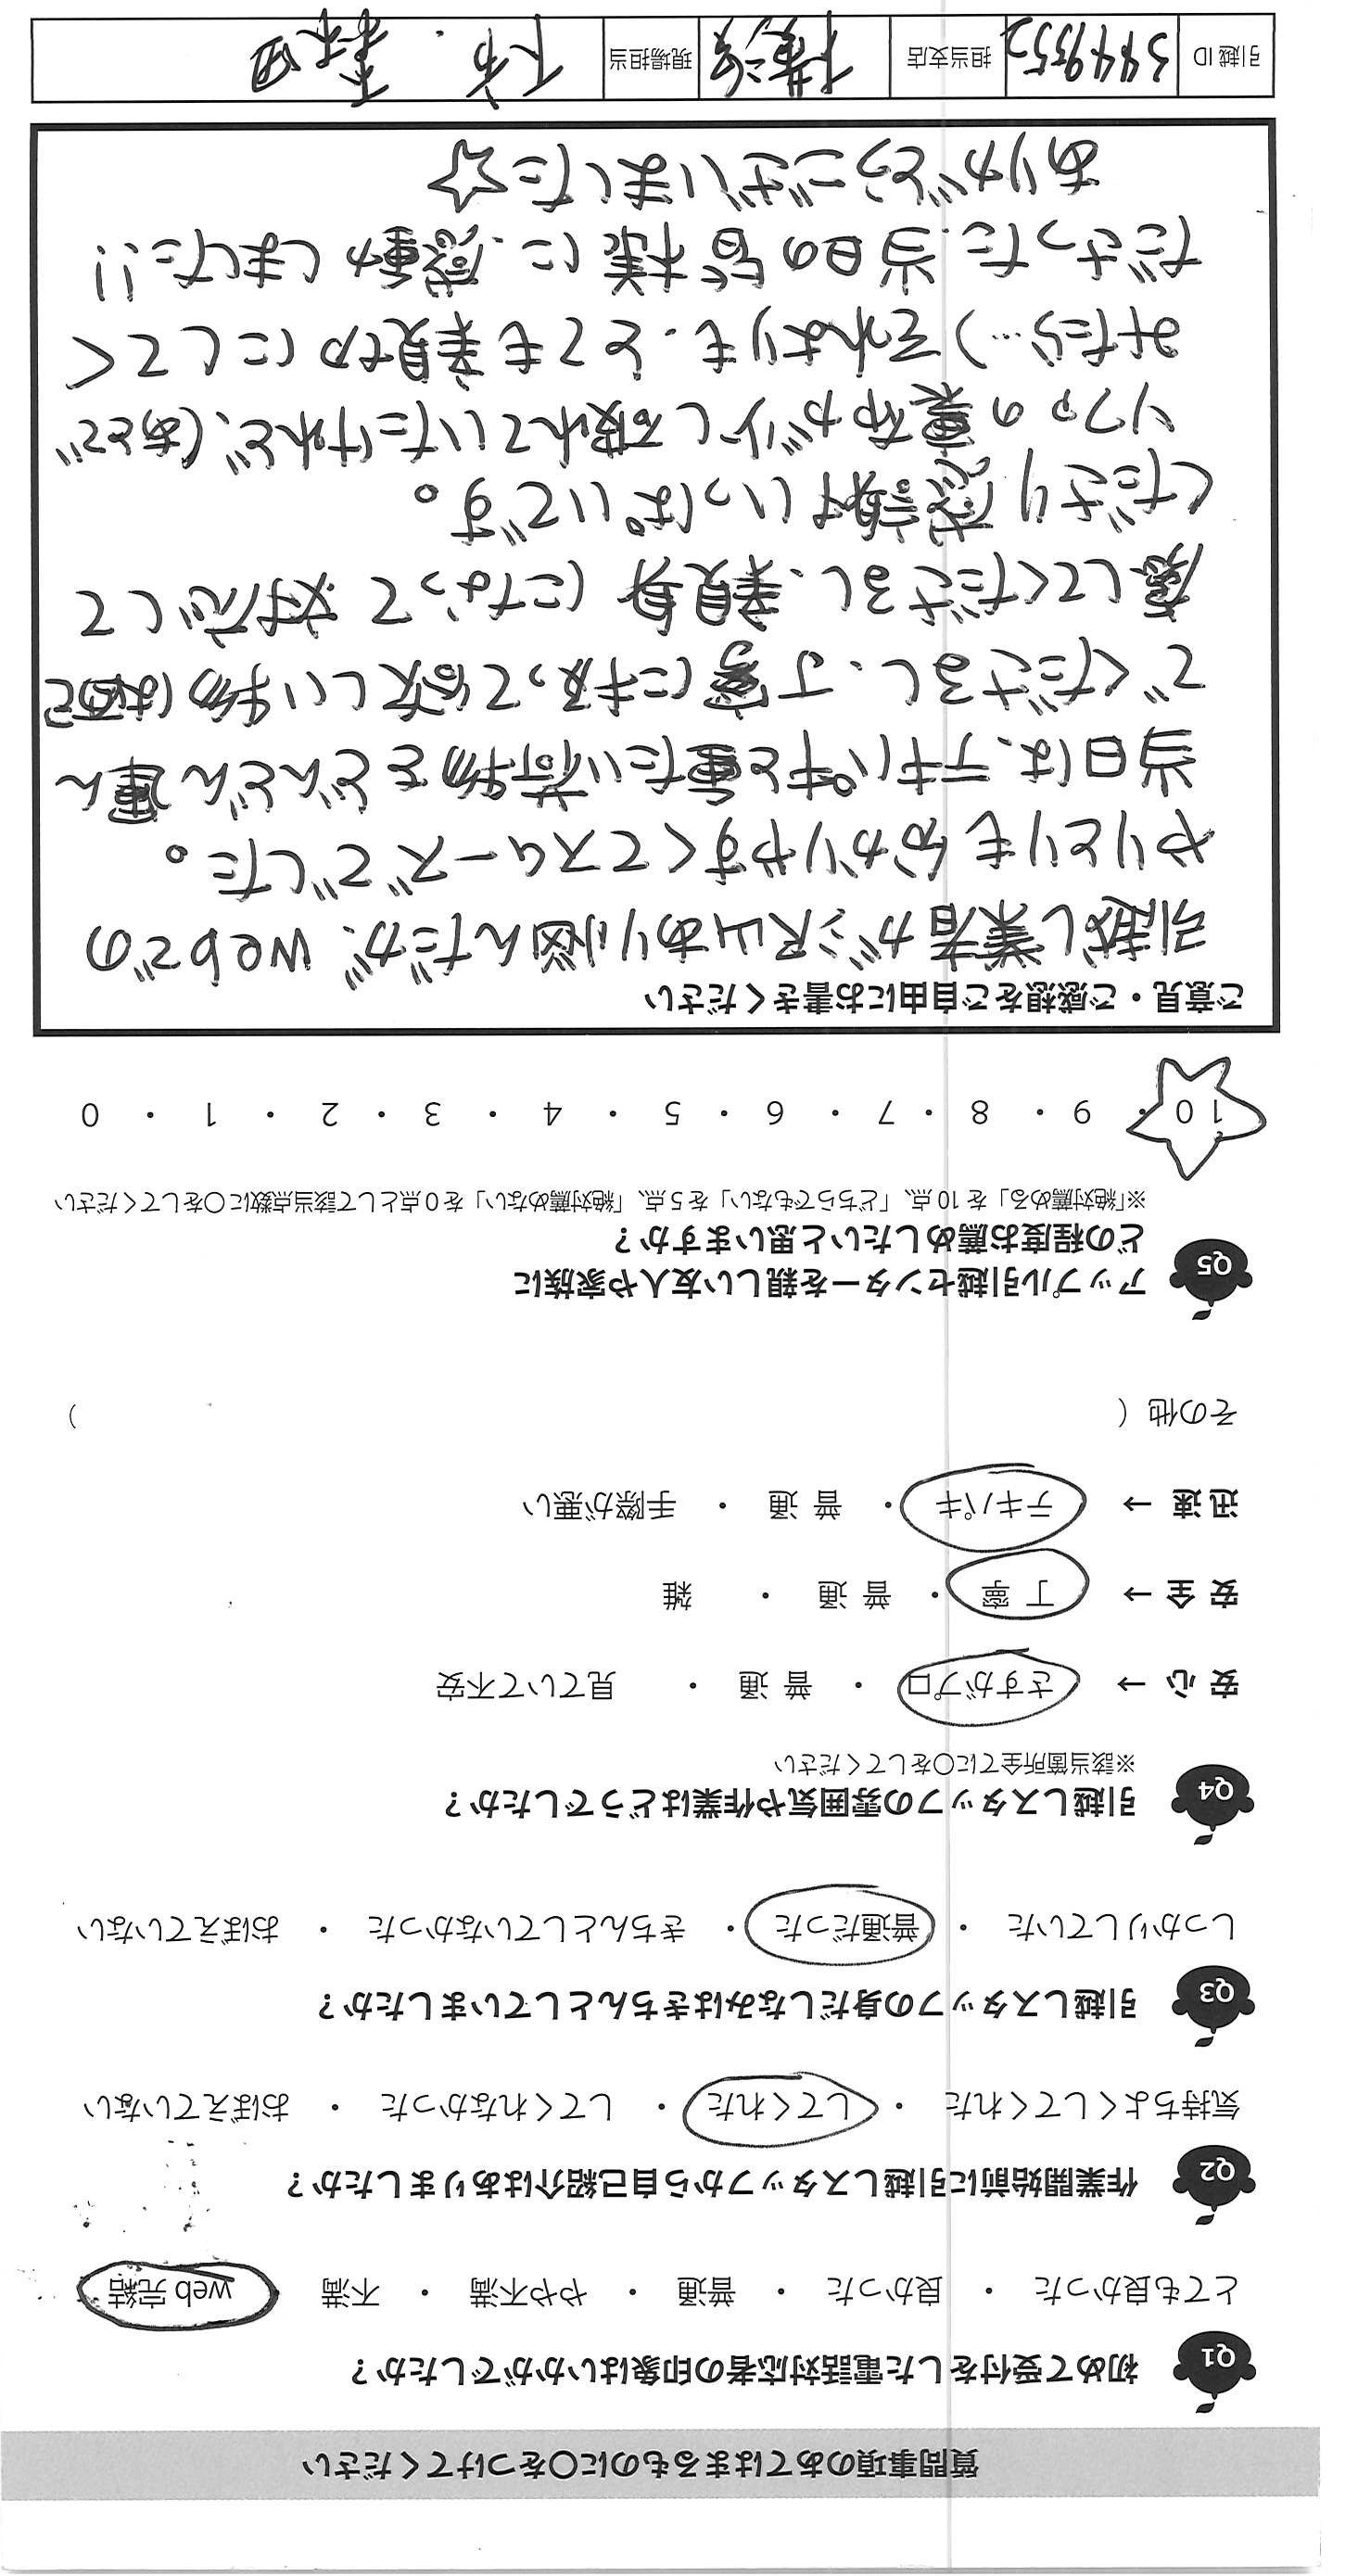 質問事項のあてはまるものに〇をつけてください
Q1 初めて受付をした電話対応者の印象はいかがでしたか？
とても良かった ・ 良かった ・ 普通 ・ やや不満 ・ 不満 ・ web 完結
Q2 作業開始前に引越しスタッフから自己紹介はありましたか？
気持ちよくしてくれた ・ してくれた ・ してくれなかった ・ おぼえていない
Q3 引越しスタッフの身だしなみはきちんとしていましたか？
しっかりしていた ・ 普通だった ・ きちんとしていなかった ・ おぼえていない
Q4 引越しスタッフの雰囲気や作業はどうでしたか？
※該当箇所全てに〇をしてください
安 心 → さすがプロ ・ 普 通 ・ 見ていて不安
安 全 → 丁 寧 ・ 普 通 ・ 雑
迅 速 → テキパキ ・ 普 通 ・ 手際が悪い
その他（ ）
Q5 アップル引越センターを親しい友人や家族に
どの程度お薦めしたいと思いますか？
※「絶対薦める」を 10 点、「どちらでもない」を 5 点、「絶対薦めない」を 0 点として該当点数に〇をしてください
10 ・ 9 ・ 8 ・ 7 ・ 6 ・ 5 ・ 4 ・ 3 ・ 2 ・ 1 ・ 0
ご意見・ご感想をご自由にお書きください
引越し業者が沢山あり悩んだが、webでの
やりとりも分かりやすくてスムーズでした。
当日は、テキパキと重たい荷物をどんどん運ん
でくださるし、丁寧に扱って欲しい物は配
慮してくださるし、親身になって対応して
くださり感謝いっぱいです。
ソファの裏布が少し破れていたけれど、（あとで
みたら…）それよりも、とても親切にしてく
ださった、当日の皆様に、感動しました!!
ありがとうございました☆
引越 ID 3449552 担当支店 横浜 現場担当 下市・森田